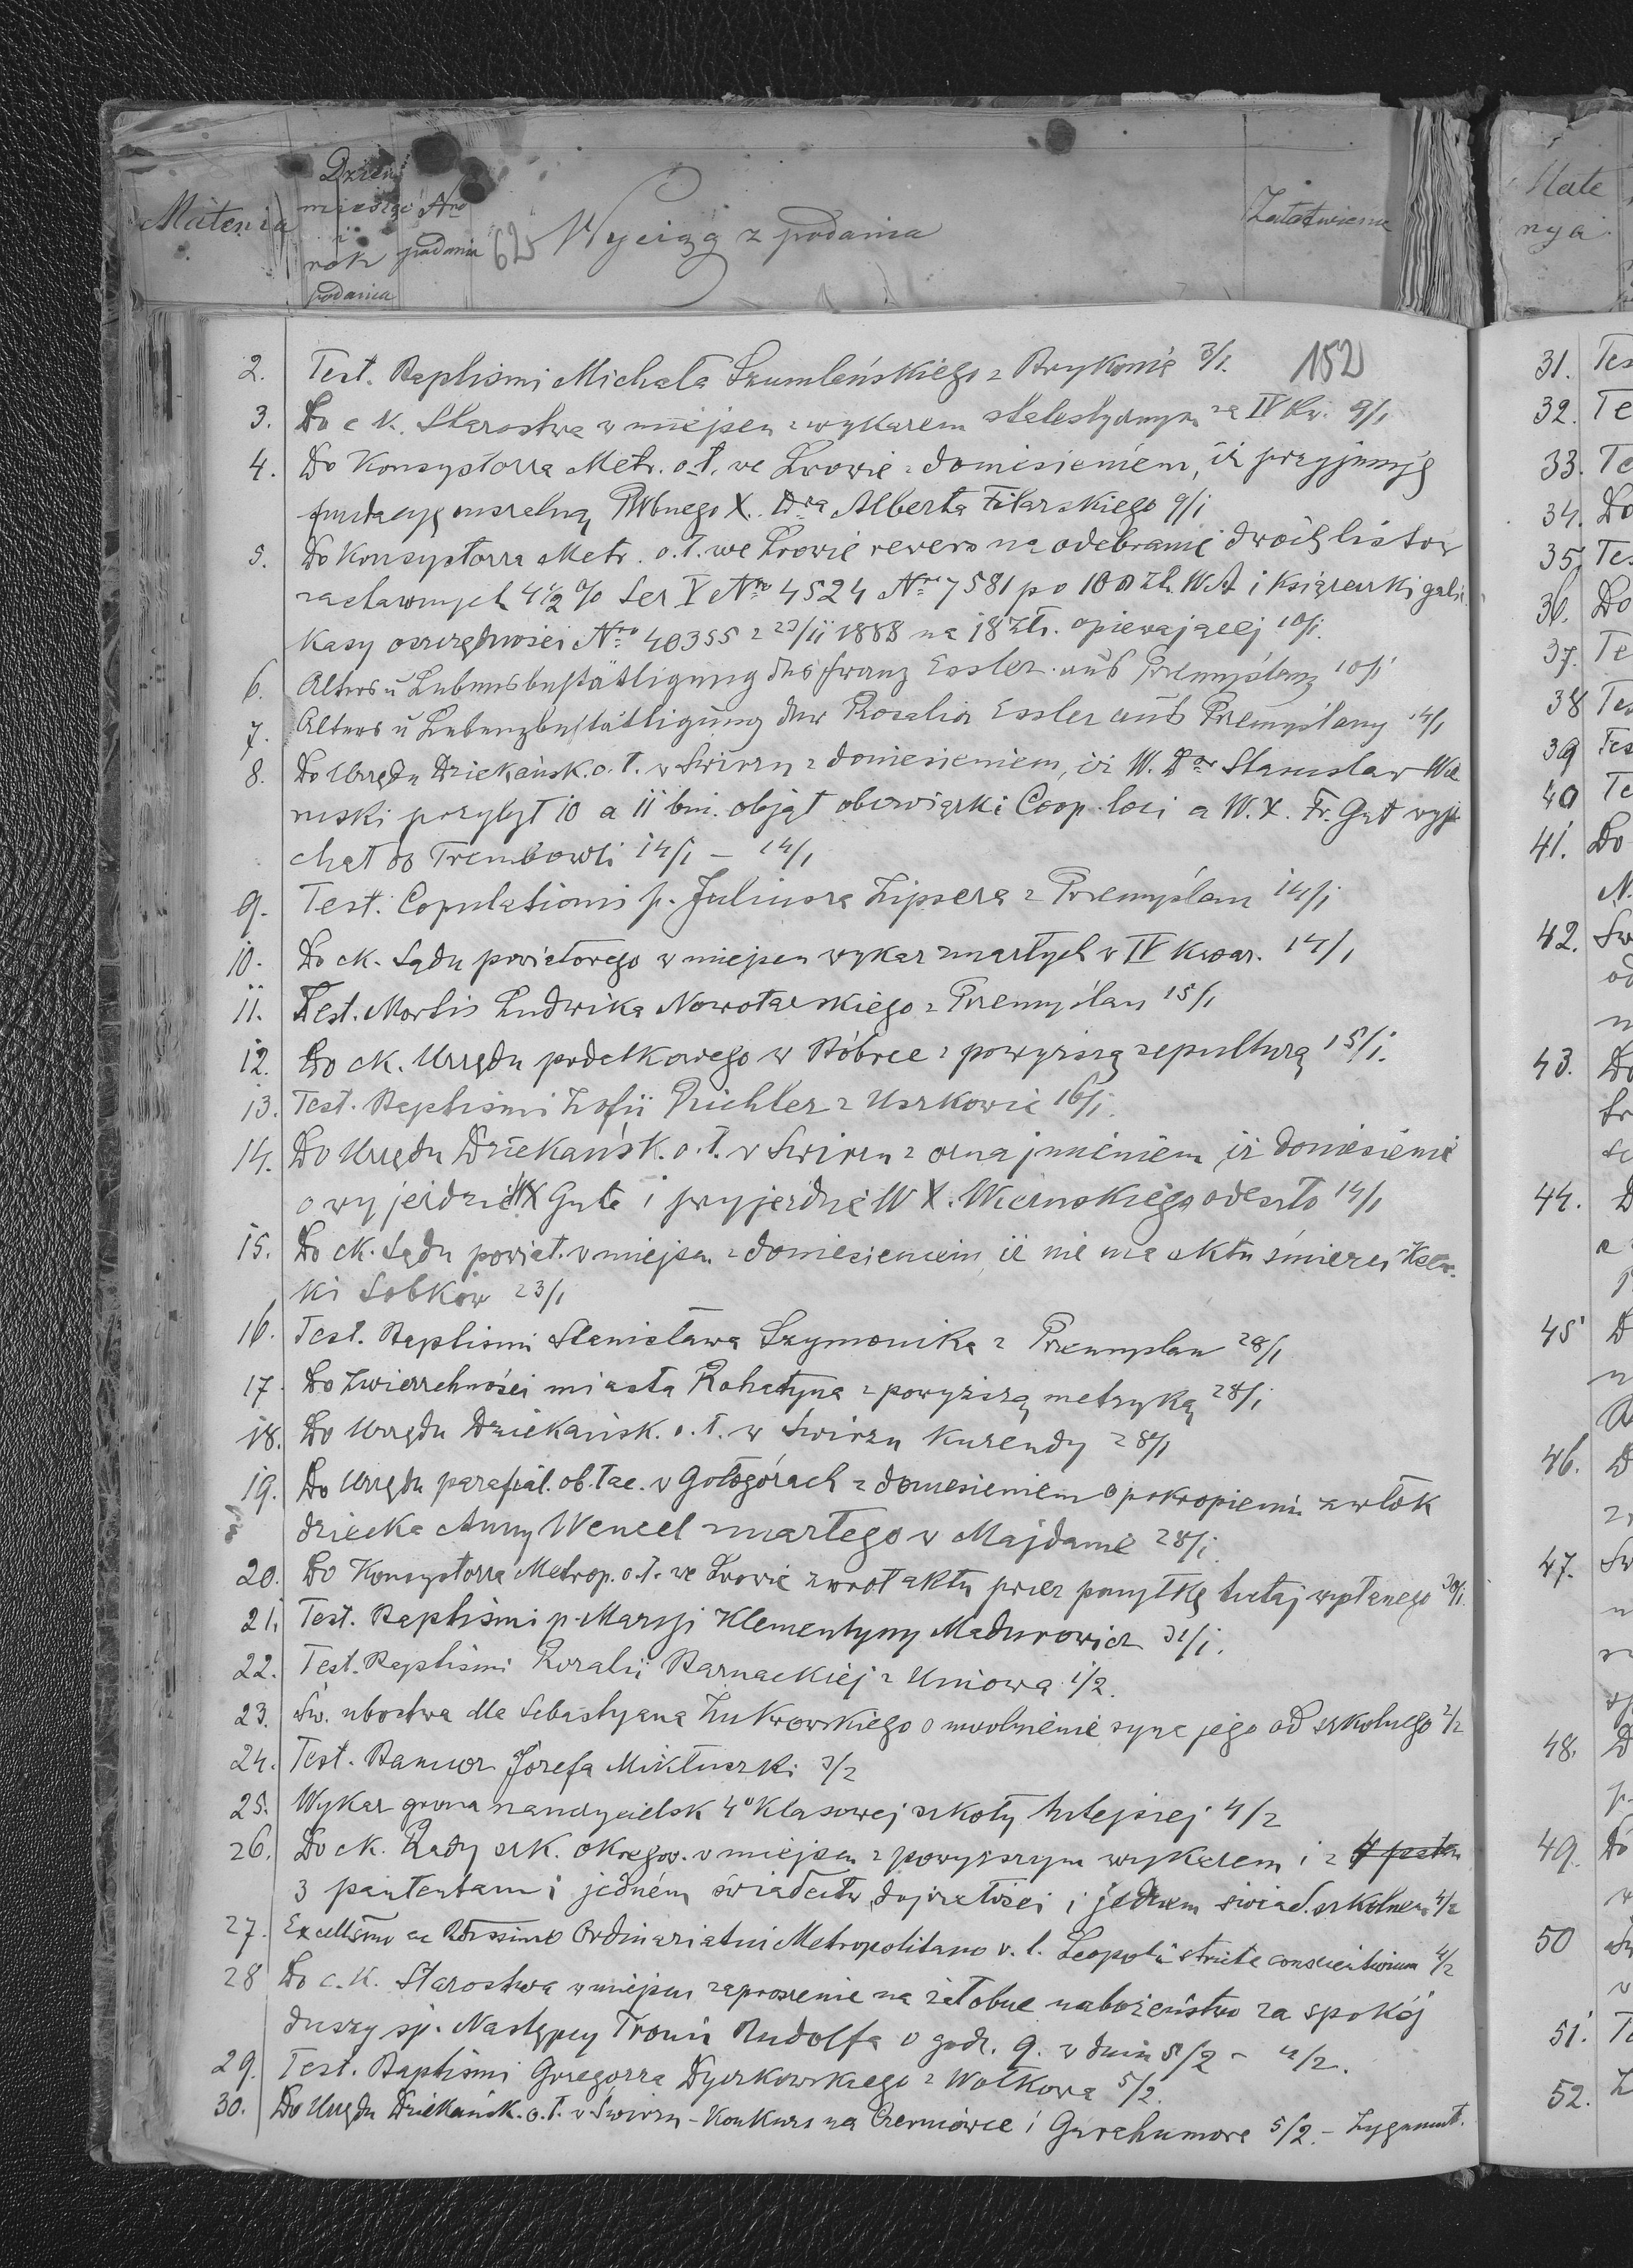 Materia
Dzień miesiąc i rok podania
Nro podania
62
Wyciąg z podania
Załatwienie
152
2. Test. Baptismi Michała Szumleńskiego z Brykonia 3/1.
3. Do c k. Starostwa w miejscu z wykazem statystycznym za IV Kw. 9/1
4. Do Konsystorza Metr. o.ł. we Lwowie z doniesieniem, iż przyjmuję
fundacyę mszalną X. Dra Alberta Filarskiego 9/1
5. Do Konsystorza Metr. o.ł. we Lwowie revers na odebranie dwóch listów
zastawnych 4 1/2 % Ser V Nro 4524 Nro 7581 po 100 zł. W.A i Książeczki galic.
Kasy oszczędności Nro 40355 z 23/11 1888 na 18 złr. opiewającej 10/1.
6. Alters u Lebensbestättigung des Franz Essler aus Przemyślany 10/1
7. Alters u Lebenzbestättigung der Rosalia Essler aus Przemyślany 14/1
8. Do Urzędu Dziekańsk. o.ł. w Świrzu z doniesieniem, iż W. X. Stanisław Wie
ruski przybył 10 a 11 bm. objął obowiązki Coop. loci a W. X. Fr. Gut wyje
chał do Trembowli 14/1 – 14/1
9. Test. Copulationis p. Juliusza Zipsera z Przemyślan 14/1
10. Do ck. Sądu powiatowego w miejscu wykaz zmarłych w IV kwar. 14/1
11. Test. Mortis Ludwika Nowotarskiego z Przemyślan 15/1
12. Do ck. Urzędu podatkowego w Bóbrce z powyższą sepulturą 15/1.
13. Test. Baptismi Zofii Pichler z Uszkowic 16/1.
14. Do Urzędu Dziekańsk. o.ł. w Świrzu z oznajmieniem, iż doniesienie
o wyjeździe WX Guta i przyjeździe W X. Wieruskiego odeszło 14/1
15. Do ck. Sądu powiat. w miejscu z doniesieniem, iż nie ma aktu śmierci
ki Sobków 23/1
16. Test. Baptismi Stanisława Szymonika z Przemyślan 28/1
17. Do Zwierzchności miasta Rohatyna z powyższą metryką 28/1
18. Do Urzędu Dziekańsk. o.ł. w Świrzu kurendy 28/1
19. Do Urzędu parafial. ob. łac. w Gołogórach z doniesieniem o pokropieniu zwłok
dziecka Anny Wencel zmarłego w Majdanie 28/1.
20. Do Konsystorza Metrop. o.ł. we Lwowie zwrot aktu przez pomyłkę tutaj wysłanego 30/1.
21. Test. Baptismi p. Maryi Klementyny Madurowicz 31/1.
22. Test. Baptismi Rozalii Barnackiej z Uniowa 1/2.
23. Św. ubóstwa dla Sebastyana Żukrowskiego o uwolnienie syna jego od szkolnego 2/2
24. Test. Bannor Józefa Mikłuszki 3/2
25. Wykaz grona nauczycielsk 4o Klasowej szkoły tutejszej 4/2
26. Do ck. Rady szk. okręgow. w miejscu z powyższym wykazem i z
3 patentami jedném świadectw. dojrzałości i jednem świad. szkolnem 4/2
27. Excellsmo ac Rdissimo Ordinariatui Metropolitano r. l. Leopoli stricte conscientiosum 4/2
28 Do c. k. Starostwa w miejscu zaproszenie na żałobne nabożeństwo za spokój
duszy śp. Następcy Tronu Rudolfa o godz. 9. w dniu 5/2 – 4/2.
29. Test. Baptismi Grzegorza Dyczkowskiego z Wołkowa 5/2.
30. Do Urzędu Dziekańsk. o.ł. w Świrzu – Konkurs na Czerniowce i Gurahumorę 5/2. – Zygmunt.
Mate
rya
31. Tes
32. Te
33. Te
34. Do
35. Tes
36. Do
37. Te
38 Tes
39 Tes
40 Te
41. Do
N.
42. Św
od
43. Do
44. D
45 D
46. D
47. Św
48. D
49. Do
50
51. T
52.